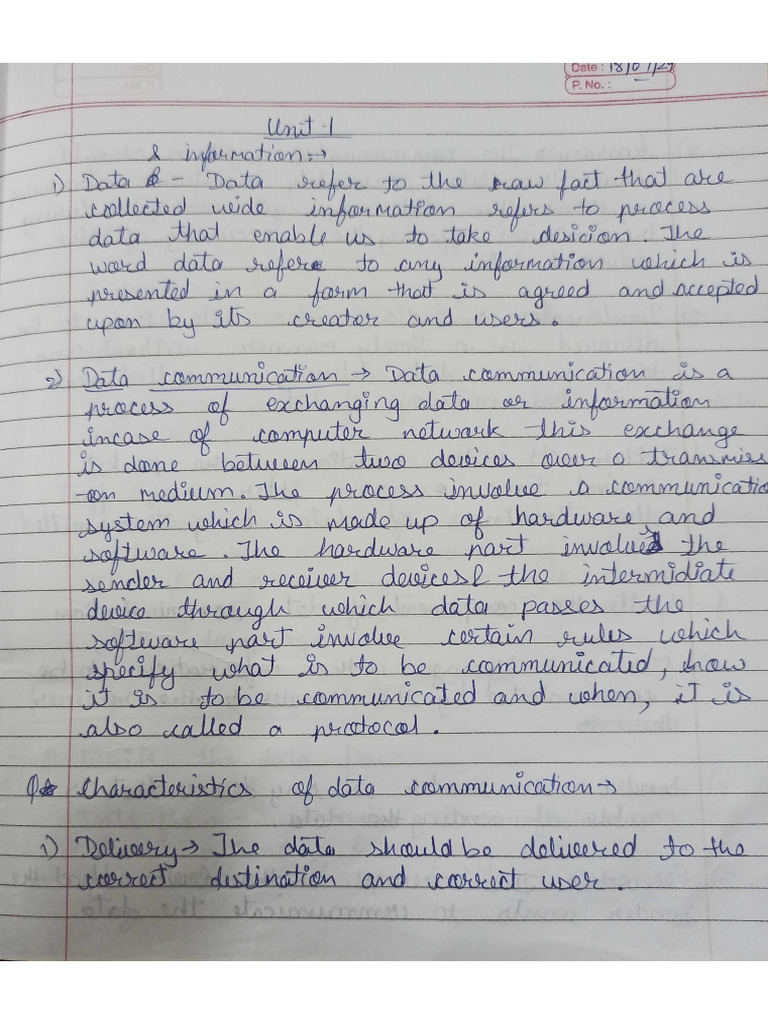 Date : 18/07/24
P. No. :
Unit-1
& information:→
1) Data - Data refer to the raw fact that are
collected wide information refers to process
data that enable us to take desicion. The
word data refere to any information which is
presented in a form that is agreed and accepted
upon by its creator and users.
2) Data communication → Data communication is a
process of exchanging data or information
incase of computer network this exchange
is done between two devices over a transmiss
-on medium. The process involve a communicatio
system which is made up of hardware and
software. The hardware part involves the
sender and receiver devices & the intermidiate
device through which data passes the
software part involve certain rules which
specify what is to be communicated, how
it is to be communicated and when, it is
also called a protocol.
Characteristics of data communication→
1) Delivery→ The data should be delivered to the
correct distination and correct user.